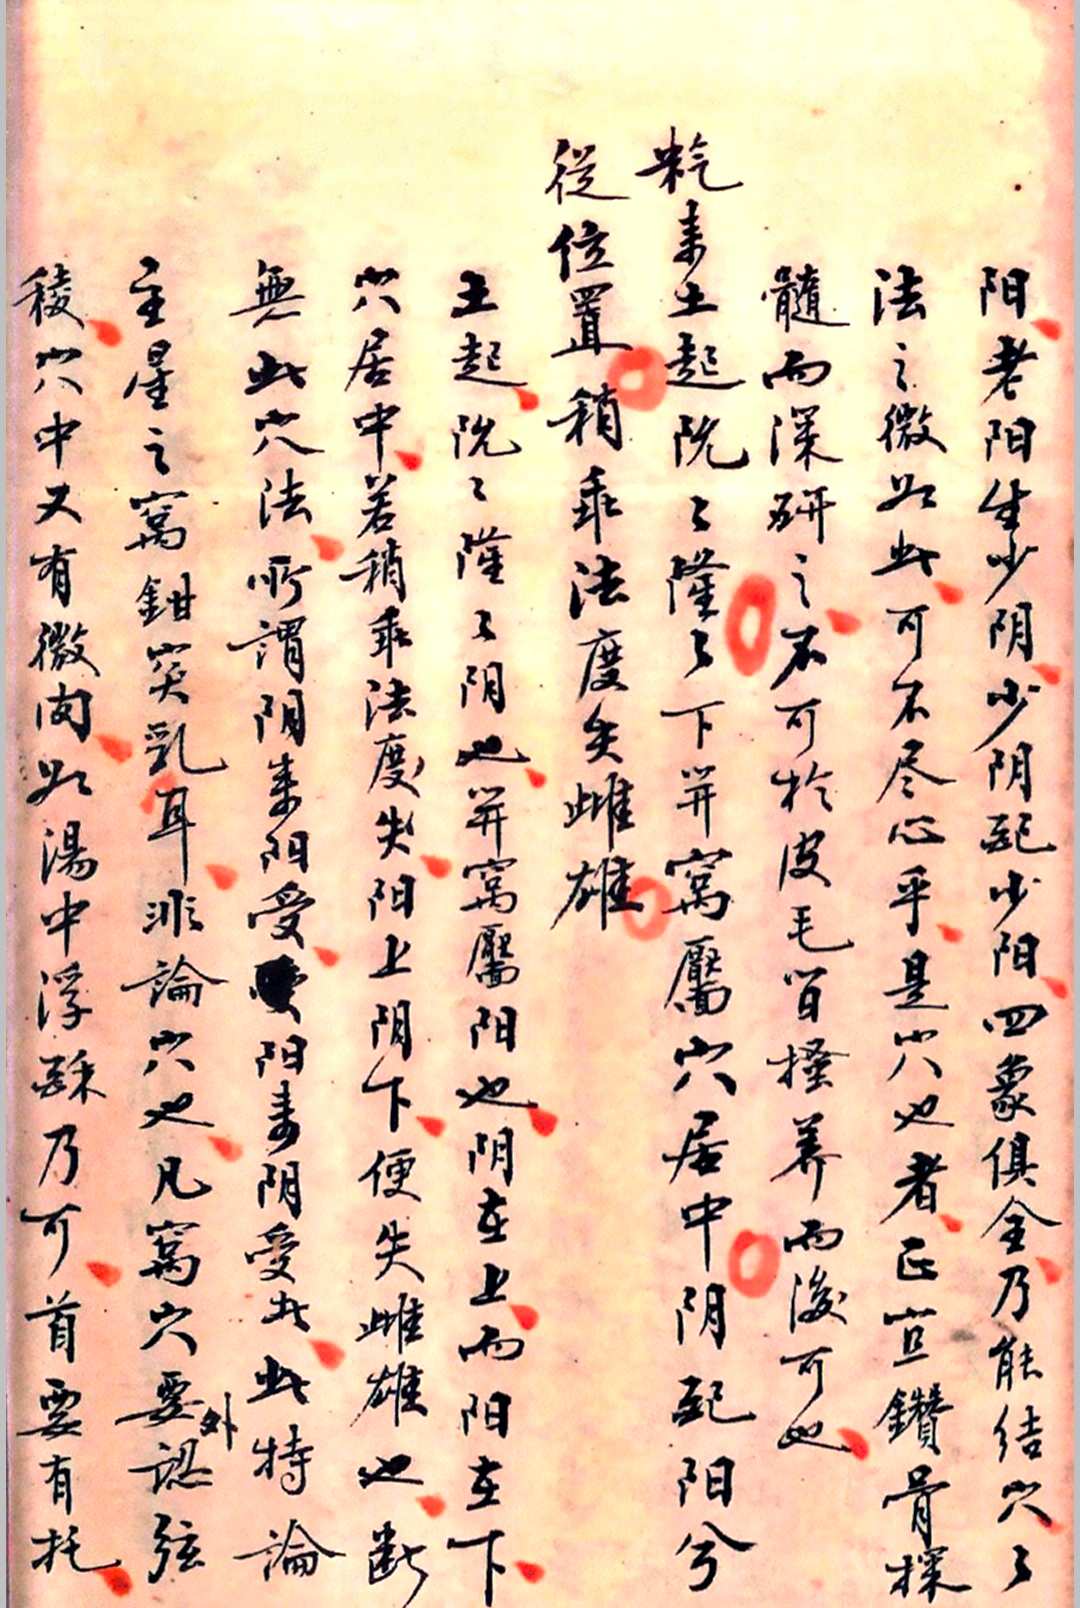 阳老阳生少阴少阴配少阳四象俱全乃能结穴〻
法之微如此可不尽心乎是穴也者正宜鑽骨探
髓而深研之不可於皮毛皆搔养而後可也
炁来土起阮〻隆〻下并窩靨穴居中阴配阳兮
從位置稍乖法度失雌雄
土起阮〻隆〻阴也并窩靨阳也阴在上而阳在下
穴居中若稍乖法度失阳上阴下便失雌雄也断
無此穴法所謂阴来阳受阳来阴受此此特論
主星之窩鉗突乳耳非論穴也凡窩穴要認外弦
稜穴中又有微肉如湯中浮酥乃可首要有托